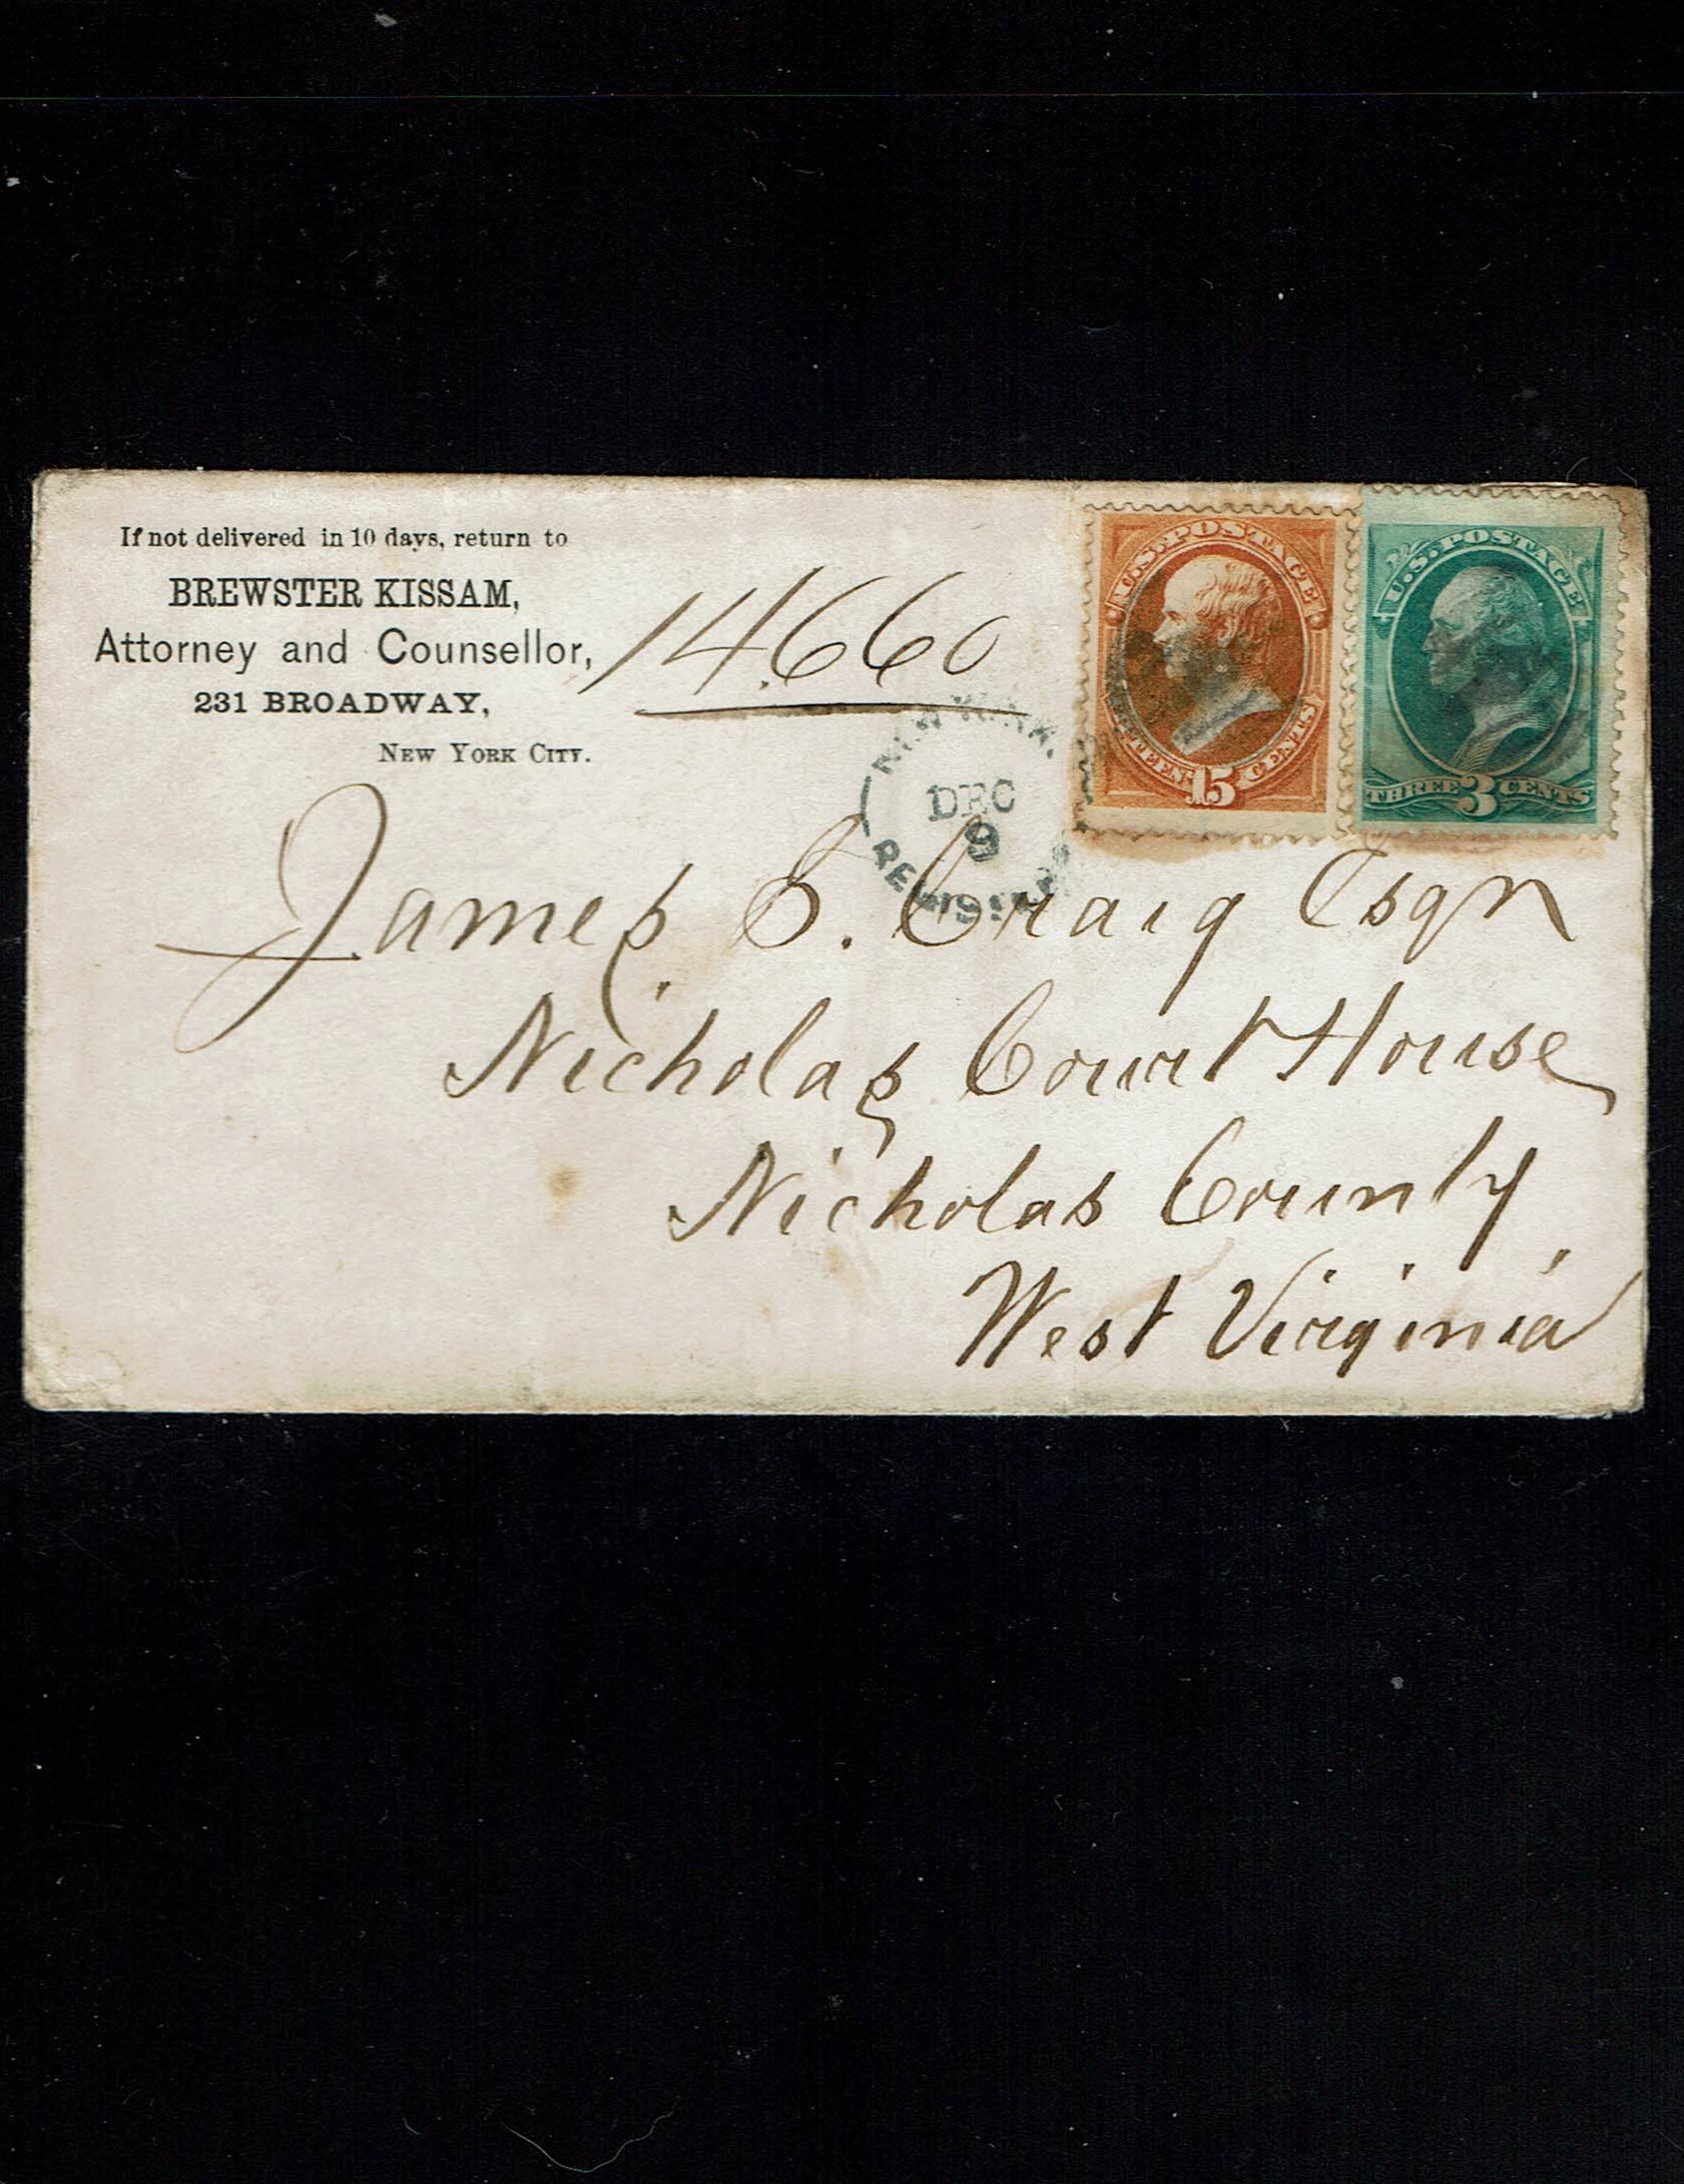 If not delivered in 10 days, return to
BREWSTER KISSAM,
Attorney and Counsellor,
231 BROADWAY,
NEW YORK CITY.
14660
U.S. POSTAGE
15 CENTS
U.S. POSTAGE
THREE 3 CENTS
NEW YORK.
DEC
9
James S. Craig Esqr
Nicholas Court House
Nicholas County,
West Virginia